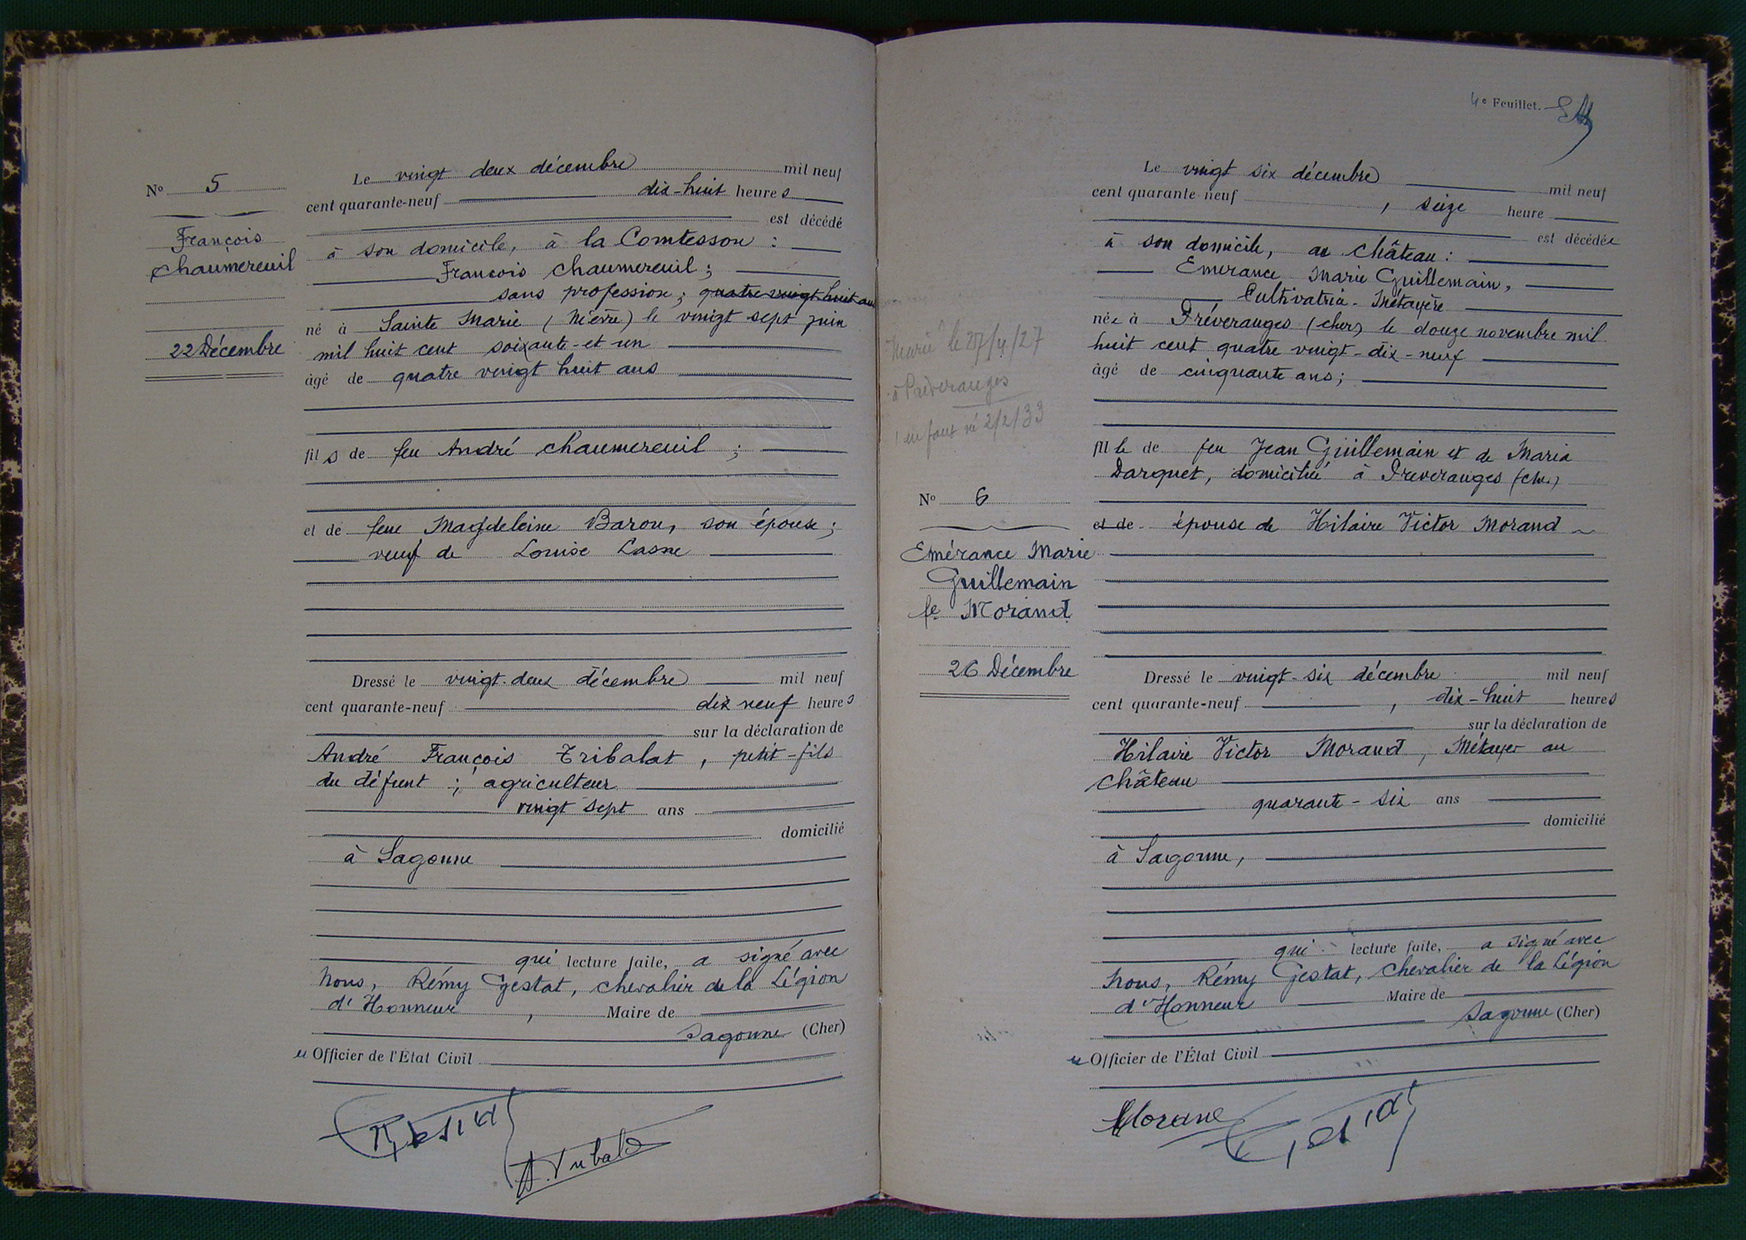 No 5
François
Chaumereuil
22 Décembre
Le vingt deux décembre mil neuf
cent quarante-neuf dix-huit heures
est décédé
à son domicile, à la Comtesson :
François Chaumereuil ;
sans profession ; quatre vingt huit ans
né à Sainte Marie (Nièvre) le vingt sept juin
mil huit cent soixante-et un
âgé de quatre vingt huit ans
fils de feu André Chaumereuil ;
et de feue Magdeleine Baron, son épouse ;
veuf de Louise Lasne
Dressé le vingt-deux décembre mil neuf
cent quarante-neuf dix neuf heures
sur la déclaration de
André François Tribalat, petit-fils
du défunt ; agriculteur
vingt sept ans
domicilié
à Sagonne
qui lecture faite, a signé avec
Nous, Rémy Gestat, chevalier de la Légion
d'Honneur, Maire de
Sagonne (Cher)
et Officier de l'État Civil
Gestat
A. Tribalat
4e Feuillet.
Marié le 27/4/27
à Préveranges
1 enfant né 2/2/33
No 6
Emérance Marie
Guillemain
fe Morand
26 Décembre
Le vingt six décembre mil neuf
cent quarante-neuf, seize heure
est décédée
à son domicile, au château :
Emerance Marie Guillemain,
Cultivatrice - Métayère
née à Préveranges (cher) le douze novembre mil
huit cent quatre vingt-dix-neuf
âgé de cinquante ans ;
fille de feu Jean Guillemain et de Maria
Darquet, domiciliée à Preveranges (cher)
et de épouse de Hilaire Victor Morand
Dressé le vingt-six décembre mil neuf
cent quarante-neuf, dix-huit heures
sur la déclaration de
Hilaire Victor Morand, Métayer au
château
quarante-six ans
domicilié
à Sagonne,
qui lecture faite, a signé avec
Nous, Rémy Gestat, chevalier de la Légion
d'Honneur Maire de
Sagonne (Cher)
et Officier de l'État Civil
Morand
Gestat